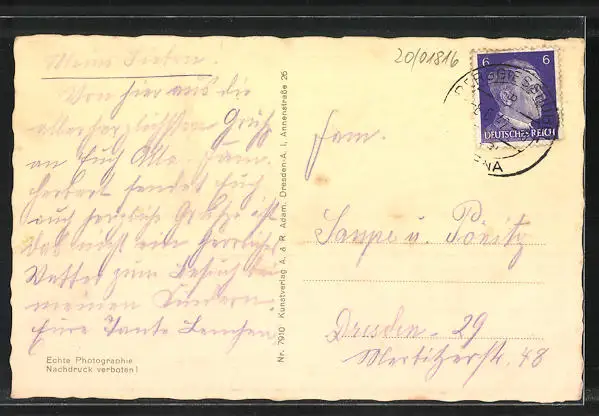 Meine Lieben.
Von hier aus die
allerherzlichsten Grüße
an Euch Alle. Fam.
Herbert sendet Euch
auch herzliche Grüße. Ist
das nicht ein herrliches
Wetter zum Besuch bei
meinen Kindern.
Eure Tante Lenchen
Echte Photographie
Nachdruck verboten!
Nr. 7910 Kunstverlag A. & R. Adam, Dresden-A. I, Annenstraße 26
20/01816
6 6
DEUTSCHES REICH
Fam.
Sampe u. Pönitz
Dresden-29
Merbitzerstr. 48